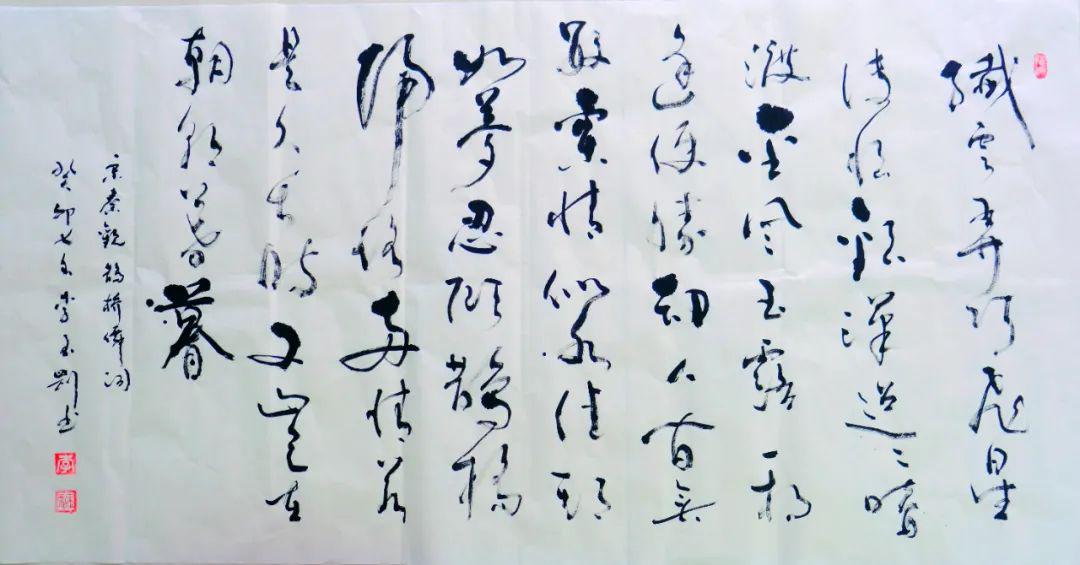 纖雲弄巧飛星
傳恨銀漢迢〻暗
渡金風玉露一相
逢便勝却人間無
數柔情似水佳期
如夢忍顧鵲橋
歸路兩情若
是久長時又豈在
朝朝暮暮
宋秦觀鵲橋僊詞
癸卯七夕李玉剛書